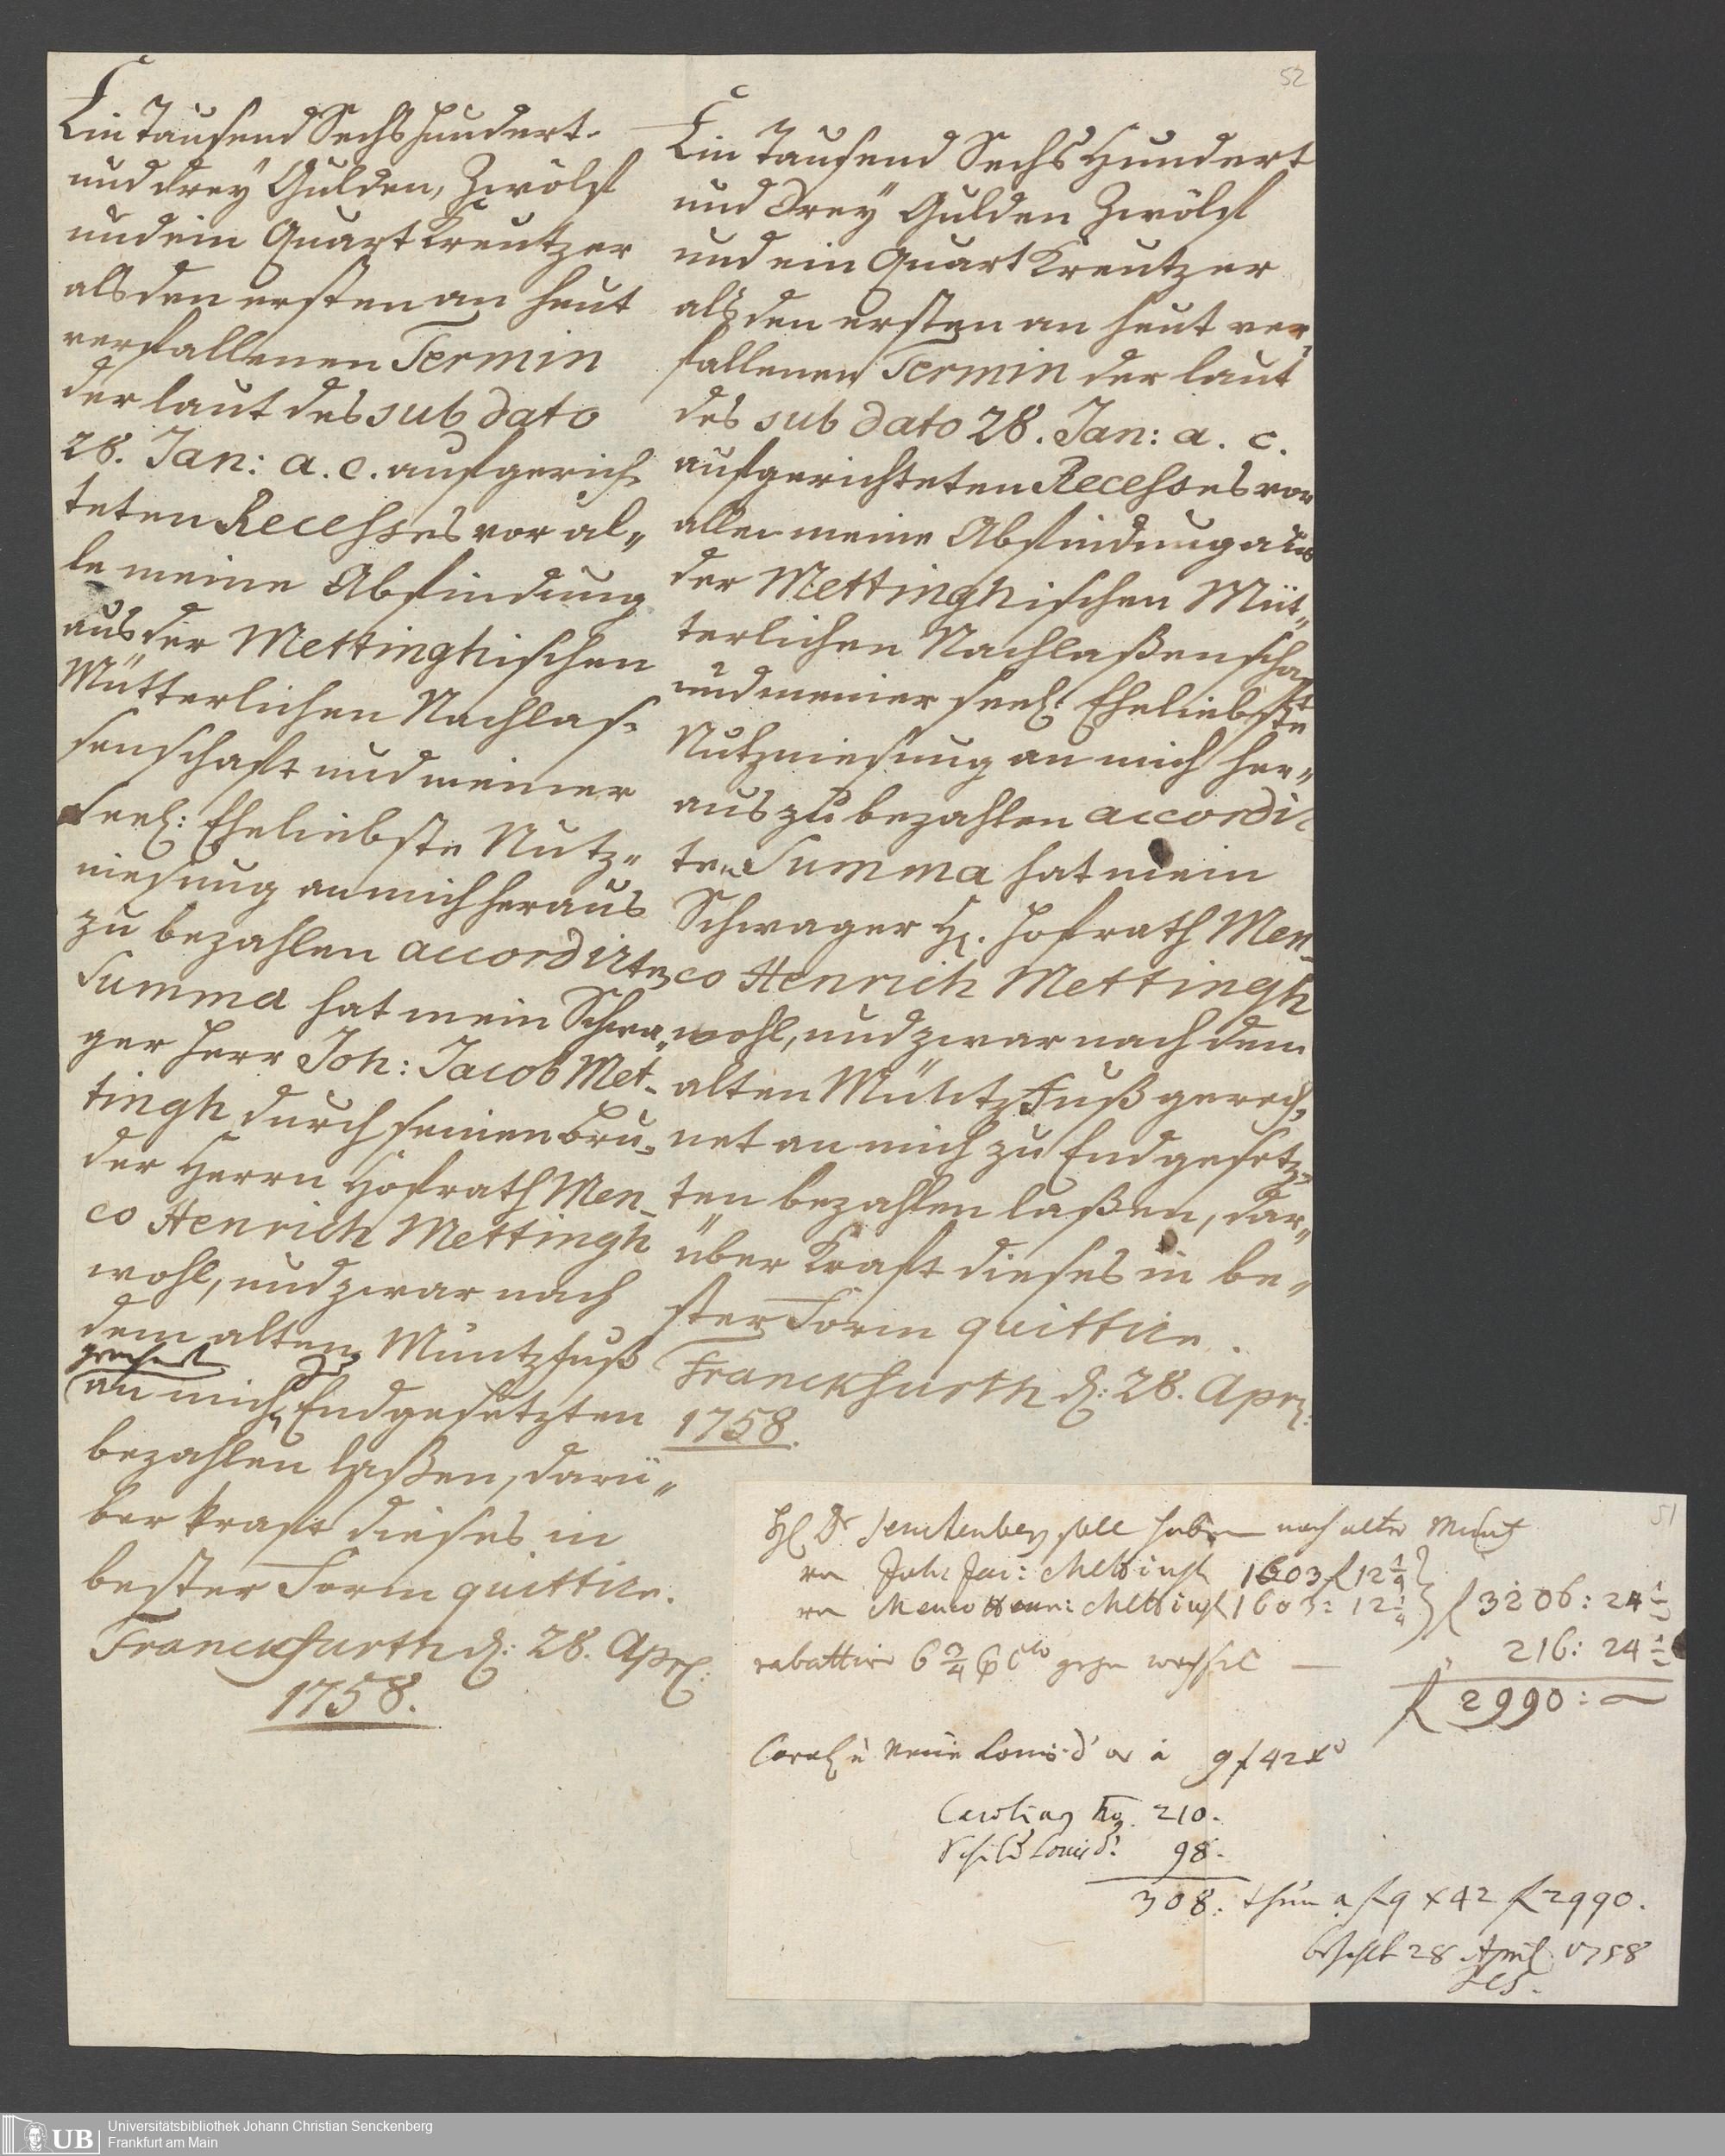 Ein Tausend Sechs Hundert
und drey Gulden, Zwölf
und ein Quart Kreutzer
als den ersten an heut
verfallenen Termin
der laut des sub dato
28. Jan: a. c. aufgerich-
teten Recesses vor al„
le meine Abfindung
aus der Mettinghischen
Mütterlichen Nachlas-
senschaft und meiner
Seel: Eheliebste Nutz„
niesung an mich heraus
zu bezahlen accordirten
Summa hat mein Schwa„
ger Herr Joh: Jacob Met-
tingh durch seinen bru-
der Herrn Hofrath Men-
co Henrich Mettingh
wohl, und zwar nach
dem alten Müntzfuß
gerechnet
zu
an mich Endgesetzten
bezahlen laßen, darü„
ber kraft dieses in
bester Form quittire.
Franckfurth d: 28. Apr:
1758.
52
Ein Tausend Sechs Hundert
und drey Gulden Zwölf
und ein Quart Kreutzer
als den ersten an heut ver-
fallenen Termin der laut
des sub dato 28. Jan: a. c.
aufgerichteten Recesses vor
alle meine Abfindung aus
der Mettinghischen Müt„
terlichen Nachlaßenschaft
und meiner seel: Eheliebste
Nutzniesung an mich her„
aus zu bezahlen accordir
ten Summa hat mein
Schwager H. Hofrath Men-
co Henrich Mettingh
wohl, und zwar nach dem
alten Müntz Fuß gerech-
net an mich zu Endgesetz-
ten bezahlen laßen, dar„
über Kraft dieses in be„
ster Form quittire.
Franckfurth d: 28. Apr:
1758.
51
H Dr Senckenberg soll haben nach alter Müntz
von Joh: Jac: Mettingh 1603 f 12 1/4
von Menco Henr: Mettingh 1603: 12 1/4 f 3206: 24 1/2
rabattire 6 3/4 p Cto gegen wechsel — 216: 24 1/2
f 2990: —
Carol: à neue Louis d'or à 9 f 42 xr
Carolins 210.
Schild Louisd: 98.
308. thun a f 9 x 42 f 2990.
bezahlt 28 April 1758